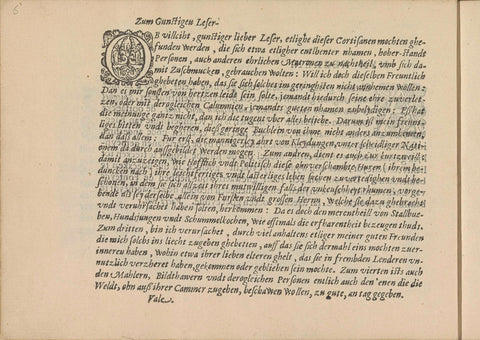 6
Zum Gunstigen Leser.
OB villciht, gunstiger lieber Leser, etlighe dieser Cortisanen mochten ghe-
funden werden, die sich etwa etligher entlhenter nhamen, hoher-stande
Personen, auch anderen ehrlichen Matronen zu nachtheil, vnd sich da
mit Zuschmucken, gebrauchen wolten: Will ich doch dieselben Freuntlich
ghebeten haben, das sie sich solches im geringhsten nicht annhemen wollen:
Dan es mir sonsten von hertzen leide sein solte, jemandt hiedurch seine ehre zu verlet-
zen, oder mit dergleichen Calumnien, jemandts gueten nhamen zubeleidigen: Es hat
die meinunge gantz nicht, dan ich die tugent vber alles liebe. Darum ist mein freunt-
liges bitten vndt begheren, dies geringe Buchlein von ihme nicht anders anzunhemen,
dan das allein: Fur erst, die mannigerley ahrt von Kleydungen, vnterscheidliger Nati-
onem dardurch ausgebildet werden mogen. Zum andren, dient es auch zur kurtzweil:
damit anzuzeigen, wie hofflich vndt Politisch diese ohnverschambte Hugen (ihrem be-
duncken nach) ihre leichtfertiges vndt lasterliges leben suchen zu vertedighen vndt be-
schonen, in dem sie sich allzeit ihres mutwilligen falls der vnkeuschheyt rhumen, vorge-
bende als sey derselbe allein von Fursten vndt grossen Herrn, welche sie dazu ghebracht
vndt verubrsachet haben solten, herkommen: Da es doch den merentheill von Stallbue-
ben, Hundsjungen vndt Schummelkochen, wie offtmals die erfharentheit bezeugen thudt.
Zum dritten, bin ich verursachet, durch viel anhaltens etliger meiner guten Freunden
die mich solchs ins liecht zugeben ghebetten, auff das sie sich dermahl eins mochten zuer-
innereu haben, wohin etwa ihrer lieben elteren ghelt, das sie in frembden Lenderen vn-
nutzlich verzheret haben, gekommen oder geblieben sein mochte. Zum vierten ists auch
den Mahlern, Bildthawern vndt derogleichen Personen entlich auch den'enen die die
Weldt, ohn außihrer Cammer zugeben, beschawen wollen, zu gute, an tag gegeben.
Vale.